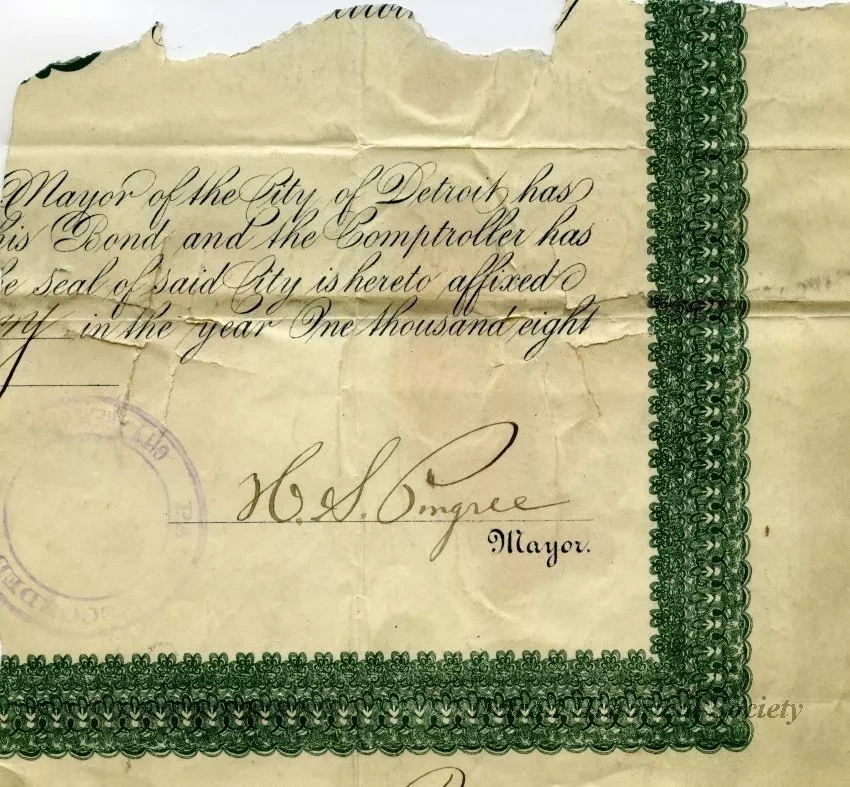 Mayor of the City of Detroit has
his Bond and the Comptroller has
seal of said City is hereto affixed
in the year One thousand eight
CITY
H. S. Pingree
Mayor.
Society